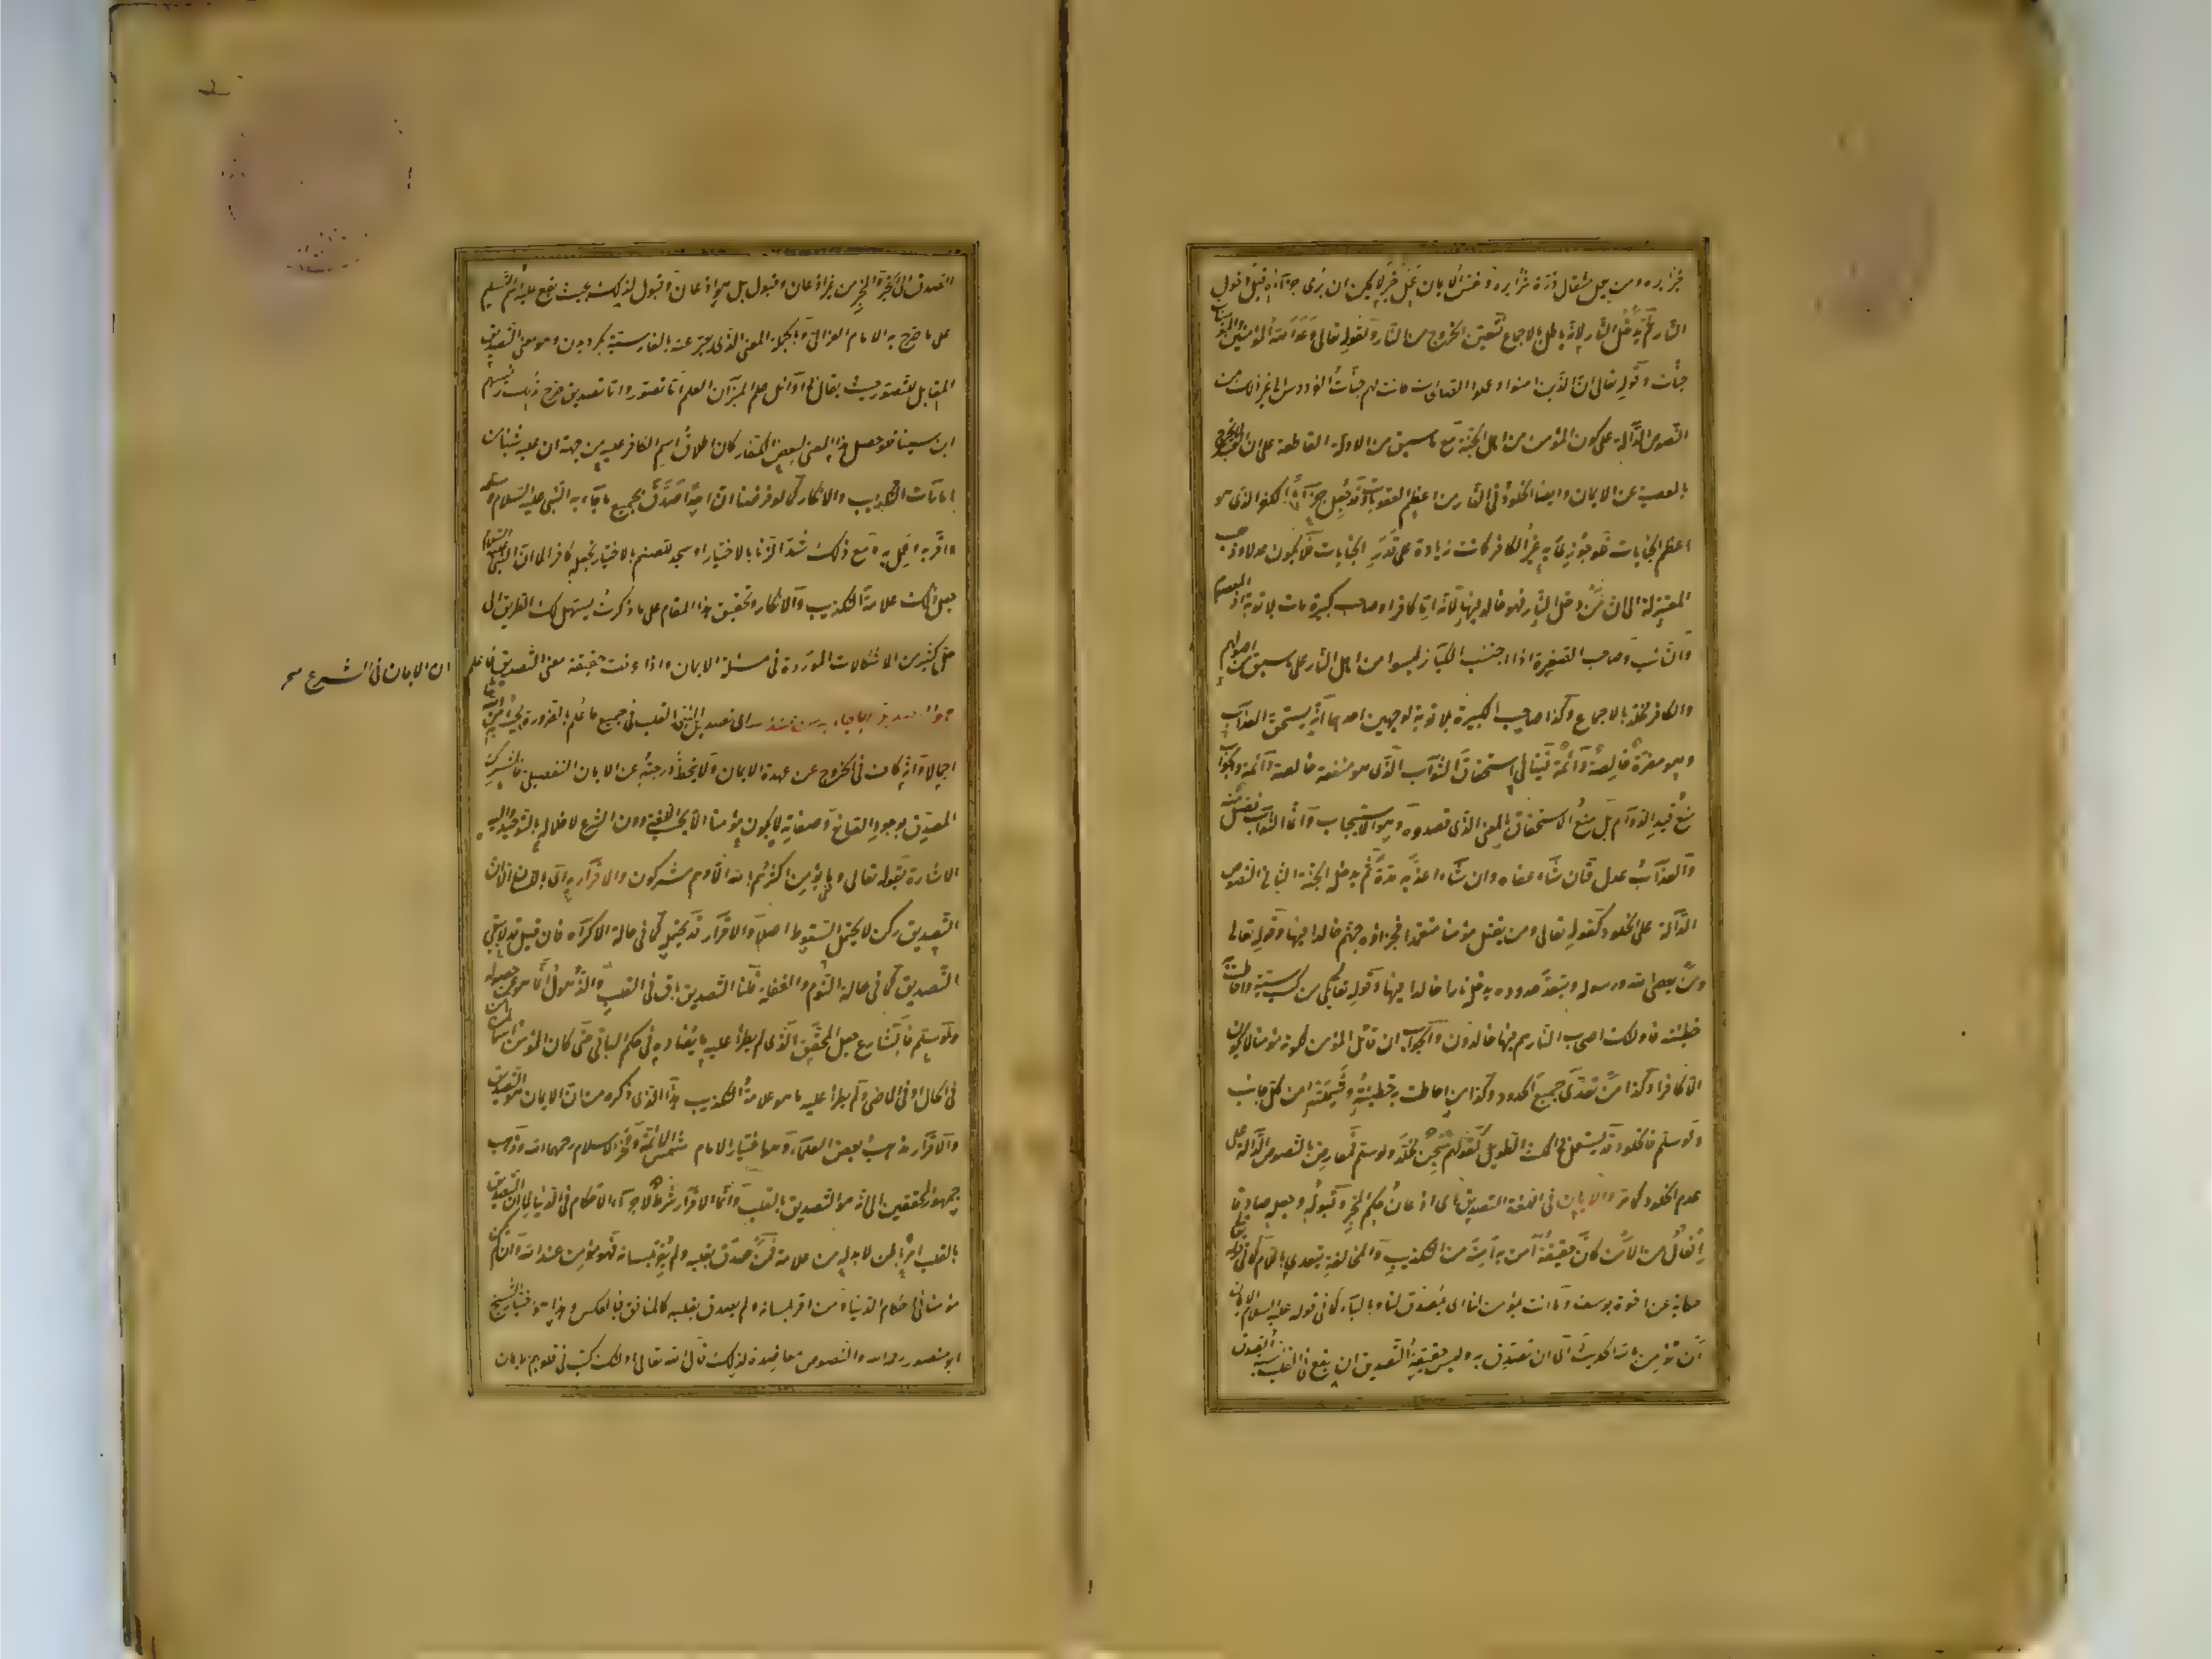 خيرا يره ومن يعمل مثقال ذرة شرا يره ونفس الايمان عمل خير لا يمكن ان يرى جزاءه قبل دخول
النار ثم يدخل النار لانه باطل بالاجماع فتعين الخروج من النار ولقوله تعالى وعد الله المؤمنين والمؤمنات
جنات وقوله تعالى ان الذين امنوا وعملوا الصالحات كانت لهم جنات الفردوس الى غير ذلك من
النصوص الدالة على كون المؤمن من اهل الجنة مع ما سبق من الادلة القاطعة على ان العبد لا يخرج
بالمعصية عن الايمان وايضا الخلود في النار من اعظم العقوبات وقد جعل جزاء الكفر الذي هو
اعظم الجنايات فلو جوزي به غير الكافر كانت زيادة على قدر الجنايات فلا يكون عدلا وذهب
المعتزلة الى ان من دخل النار فهو خالد فيها لانه اما كافر او صاحب كبيرة مات بلا توبة اذ المعصوم
والتائب وصاحب الصغيرة اذا اجتنب الكبائر ليسوا من اهل النار على ما سبق من اصولهم
والكافر مخلد بالاجماع وكذا صاحب الكبيرة بلا توبة لوجهين احدهما انه يستحق العذاب
وهو مضرة خالصة دائمة فينافي استحقاق الثواب الذي هو منفعة خالصة دائمة والجواب
منع قيد الدوام بل منع الاستحقاق بالمعنى الذي قصدوه وهو الاستيجاب وانما الثواب فضل منه
والعذاب عدل فان شاء عفا وان شاء عذبه مدة ثم يدخله الجنة الثاني النصوص
الدالة على الخلود كقوله تعالى ومن يقتل مؤمنا متعمدا فجزاؤه جهنم خالدا فيها وقوله تعالى
ومن يعص الله ورسوله ويتعد حدوده يدخله نارا خالدا فيها وقوله تعالى بلى من كسب سيئة واحاطت به
خطيئته فاولئك اصحاب النار هم فيها خالدون والجواب ان قاتل المؤمن لكونه مؤمنا لا يكون
الا كافرا وكذا من تعدى جميع الحدود وكذا من احاطت به خطيئته وشملته من كل جانب
ولو سلم فالخلود قد يستعمل في المكث الطويل كقولهم سجن مخلد ولو سلم فمعارض بالنصوص الدالة على
عدم الخلود كما مر والايمان في اللغة التصديق اى اذعان حكم المخبر وقبوله وجعله صادقا
افعال من الامن كان حقيقة آمن به آمنه من التكذيب والمخالفة يتعدى باللام كما في قوله تعالى
حكاية عن اخوة يوسف وما انت بمؤمن لنا اى بمصدق لنا وبالباء كما في قوله عليه السلام الايمان
ان تؤمن بالله الحديث اى ان تصدق به وليس حقيقة التصديق ان يقع في القلب نسبة الصدق
الصدق الى الخبر او المخبر من غير اذعان وقبول بل هو اذعان وقبول لذلك بحيث يقع عليه اسم التسليم
على ما صرح به الامام الغزالي وبالجملة المعنى الذي يعبر عنه بالفارسية بكرويدن وهو معنى التصديق
المقابل للتصور حيث يقال في اوائل علم الميزان العلم اما تصور واما تصديق صرح بذلك رئيسهم
ابن سينا فلو حصل هذا المعنى لبعض الكفار كان اطلاق اسم الكافر عليه من جهة ان عليه شيئا من
امارات التكذيب والانكار كما لو فرضنا ان احدا صدق بجميع ما جاء به النبي عليه السلام وسلمه
واقر به وعمل به ومع ذلك شد الزنار بالاختيار او سجد للصنم بالاختيار نجعله كافرا لما ان النبي عليه السلام
جعل ذلك علامة التكذيب والانكار وتحقيق هذا المقام على ما ذكرت يسهل لك الطريق الى
حل كثير من الاشكالات الموردة في مسئلة الايمان واذا عرفت حقيقة معنى التصديق فاعلم
ان الايمان في الشرع صح
هو التصديق بما جاء به من عند الله اى تصديق النبي بالقلب في جميع ما علم بالضرورة مجيئه به من عند الله
اجمالا وانه كاف في الخروج عن عهدة الايمان ولا ينحط درجته عن الايمان التفصيلي فالمشرك
المصدق بوجود الصانع وصفاته لا يكون مؤمنا الا بحسب اللغة دون الشرع لاخلاله بالتوحيد واليه
الاشارة بقوله تعالى وما يؤمن اكثرهم بالله الا وهم مشركون والاقرار به اى باللسان الا ان
التصديق ركن لا يحتمل السقوط اصلا والاقرار قد يحتمله كما في حالة الاكراه فان قيل قد لا يبقى
التصديق كما في حالة النوم والغفلة قلنا التصديق باق في القلب والذهول انما هو عن حصوله
ولو سلم فالشارع جعل المحقق الذي لم يطرأ عليه ما يضاده في حكم الباقي حتى كان المؤمن اسما لمن آمن
في الحال او في الماضي ولم يطرأ عليه ما هو علامة التكذيب هذا الذي ذكره من ان الايمان هو التصديق
والاقرار مذهب بعض العلماء وهو اختيار الامام شمس الائمة وفخر الاسلام رحمهما الله وذهب
جمهور المحققين الى انه هو التصديق بالقلب وانما الاقرار شرط لاجراء الاحكام في الدنيا لما ان التصديق
بالقلب امر باطن لا بد له من علامة فمن صدق بقلبه ولم يقر بلسانه فهو مؤمن عند الله وان لم يكن
مؤمنا في احكام الدنيا ومن اقر بلسانه ولم يصدق بقلبه كالمنافق فبالعكس وهذا هو اختيار الشيخ
ابو منصور رحمه الله والنصوص معاضدة لذلك قال الله تعالى اولئك كتب في قلوبهم الايمان